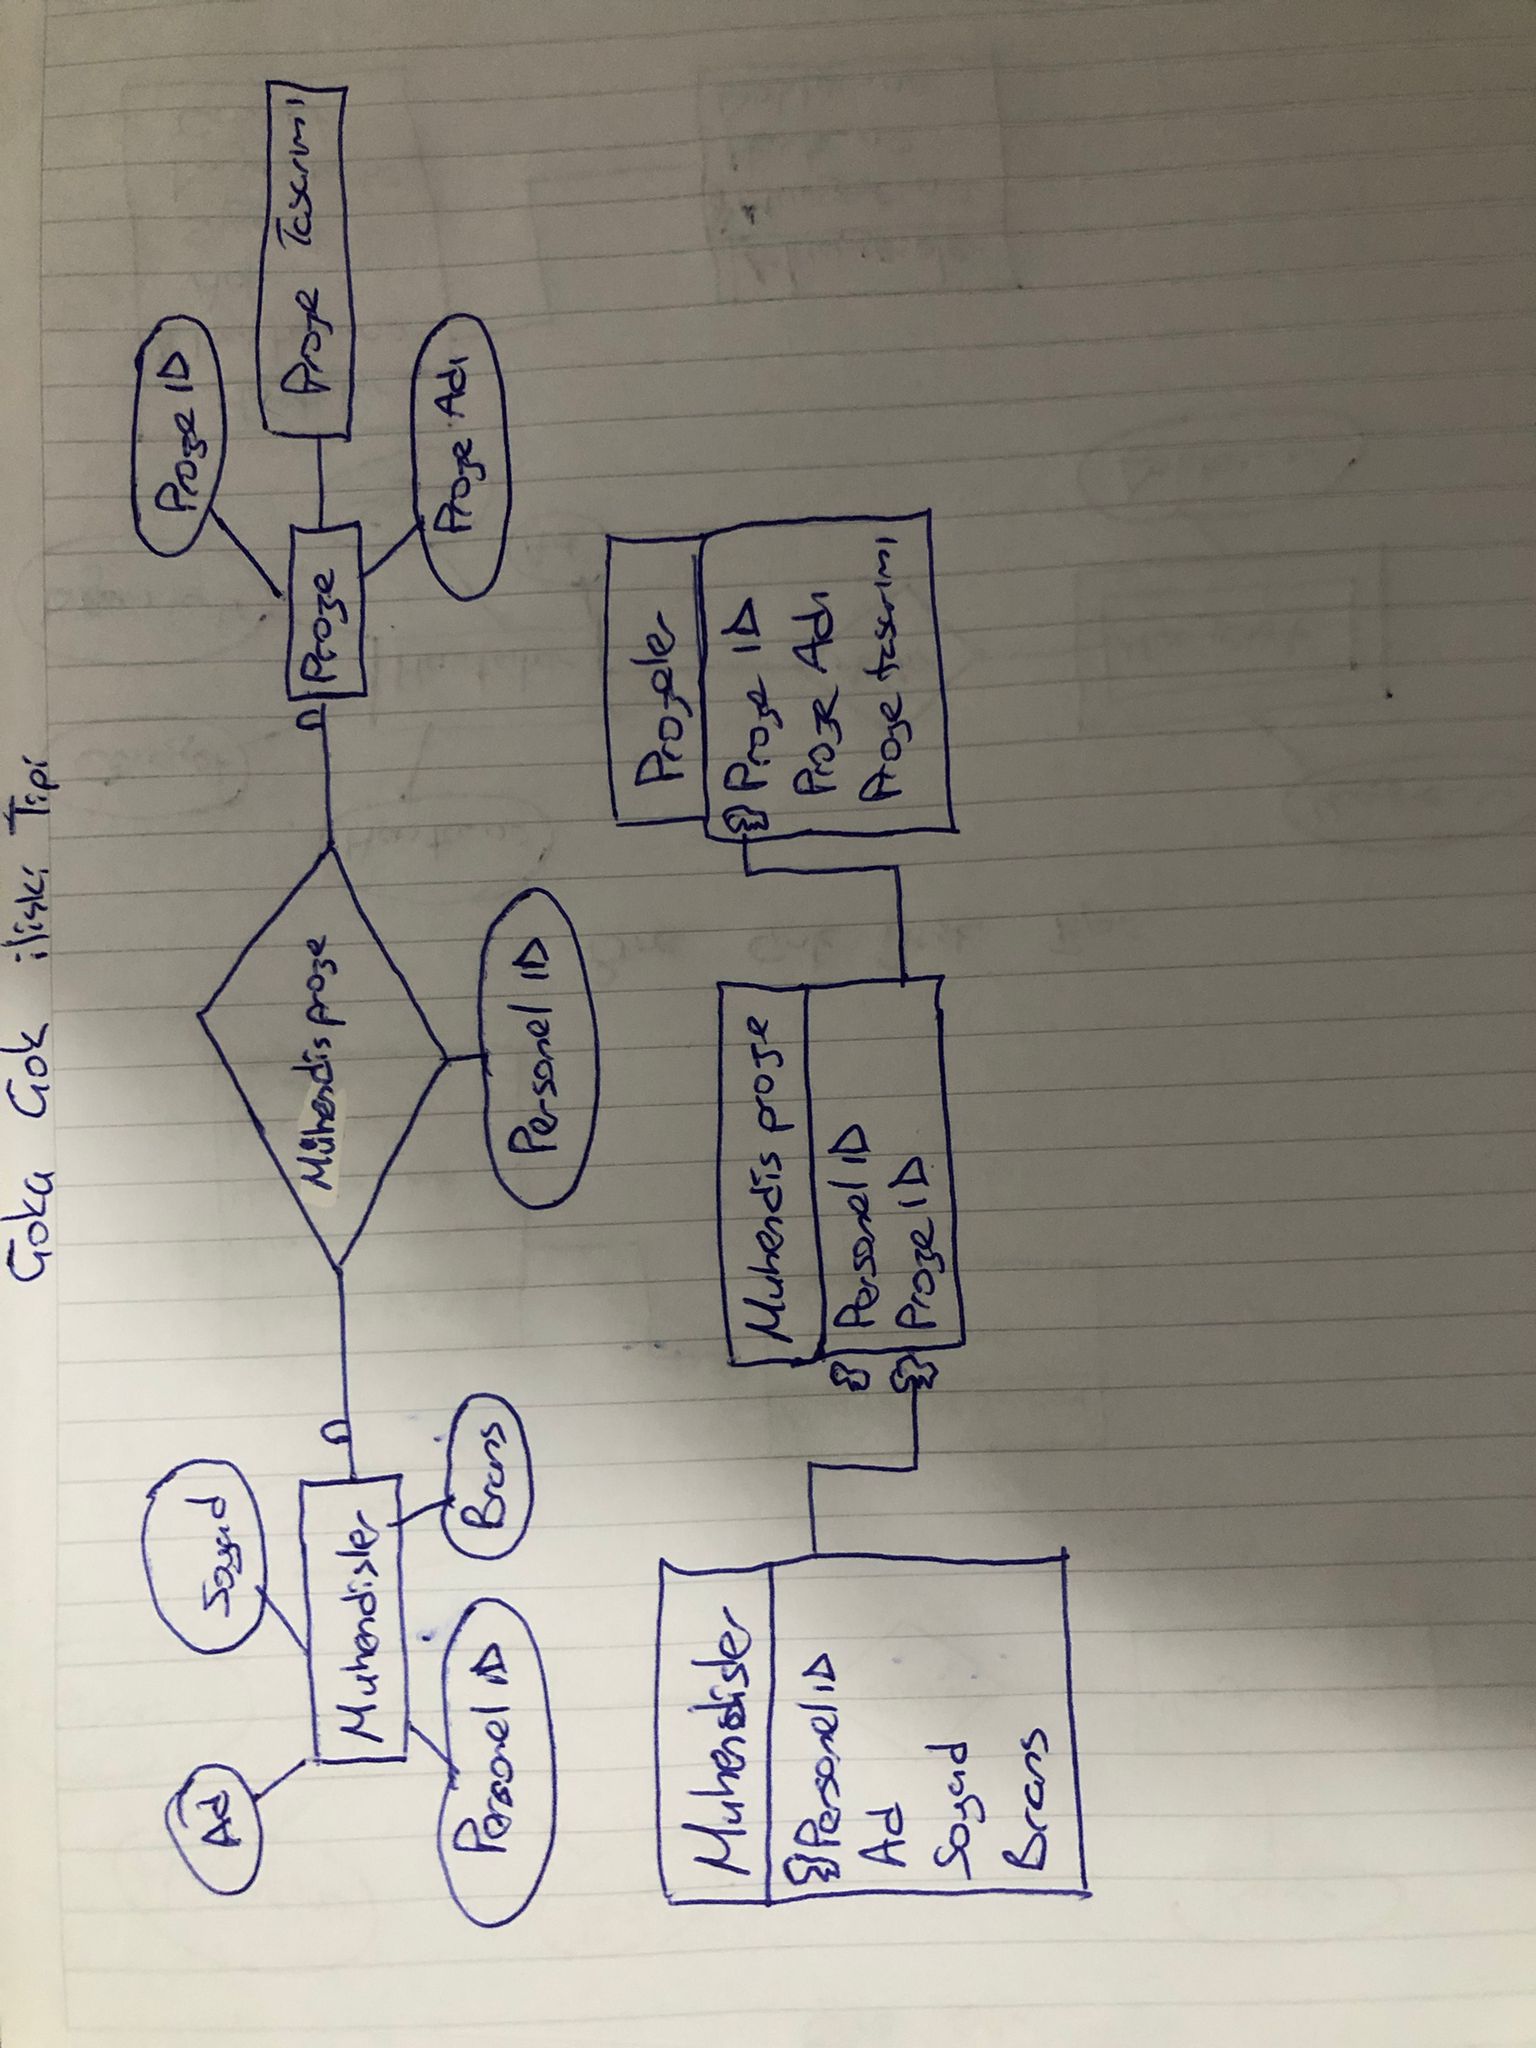 Çoka Çok ilişki Tipi
Ad
Soyad
Muhendisler
Personel ID
Brans
Mühendis proje
Personel ID
Proje ID
Proje
Proje Adı
Proje Tasarımı
Muhendisler
Personel ID
Ad
Soyad
Brans
Muhendis proje
Personel ID
Proje ID
Projeler
Proje ID
Proje Adı
Proje tasarımı